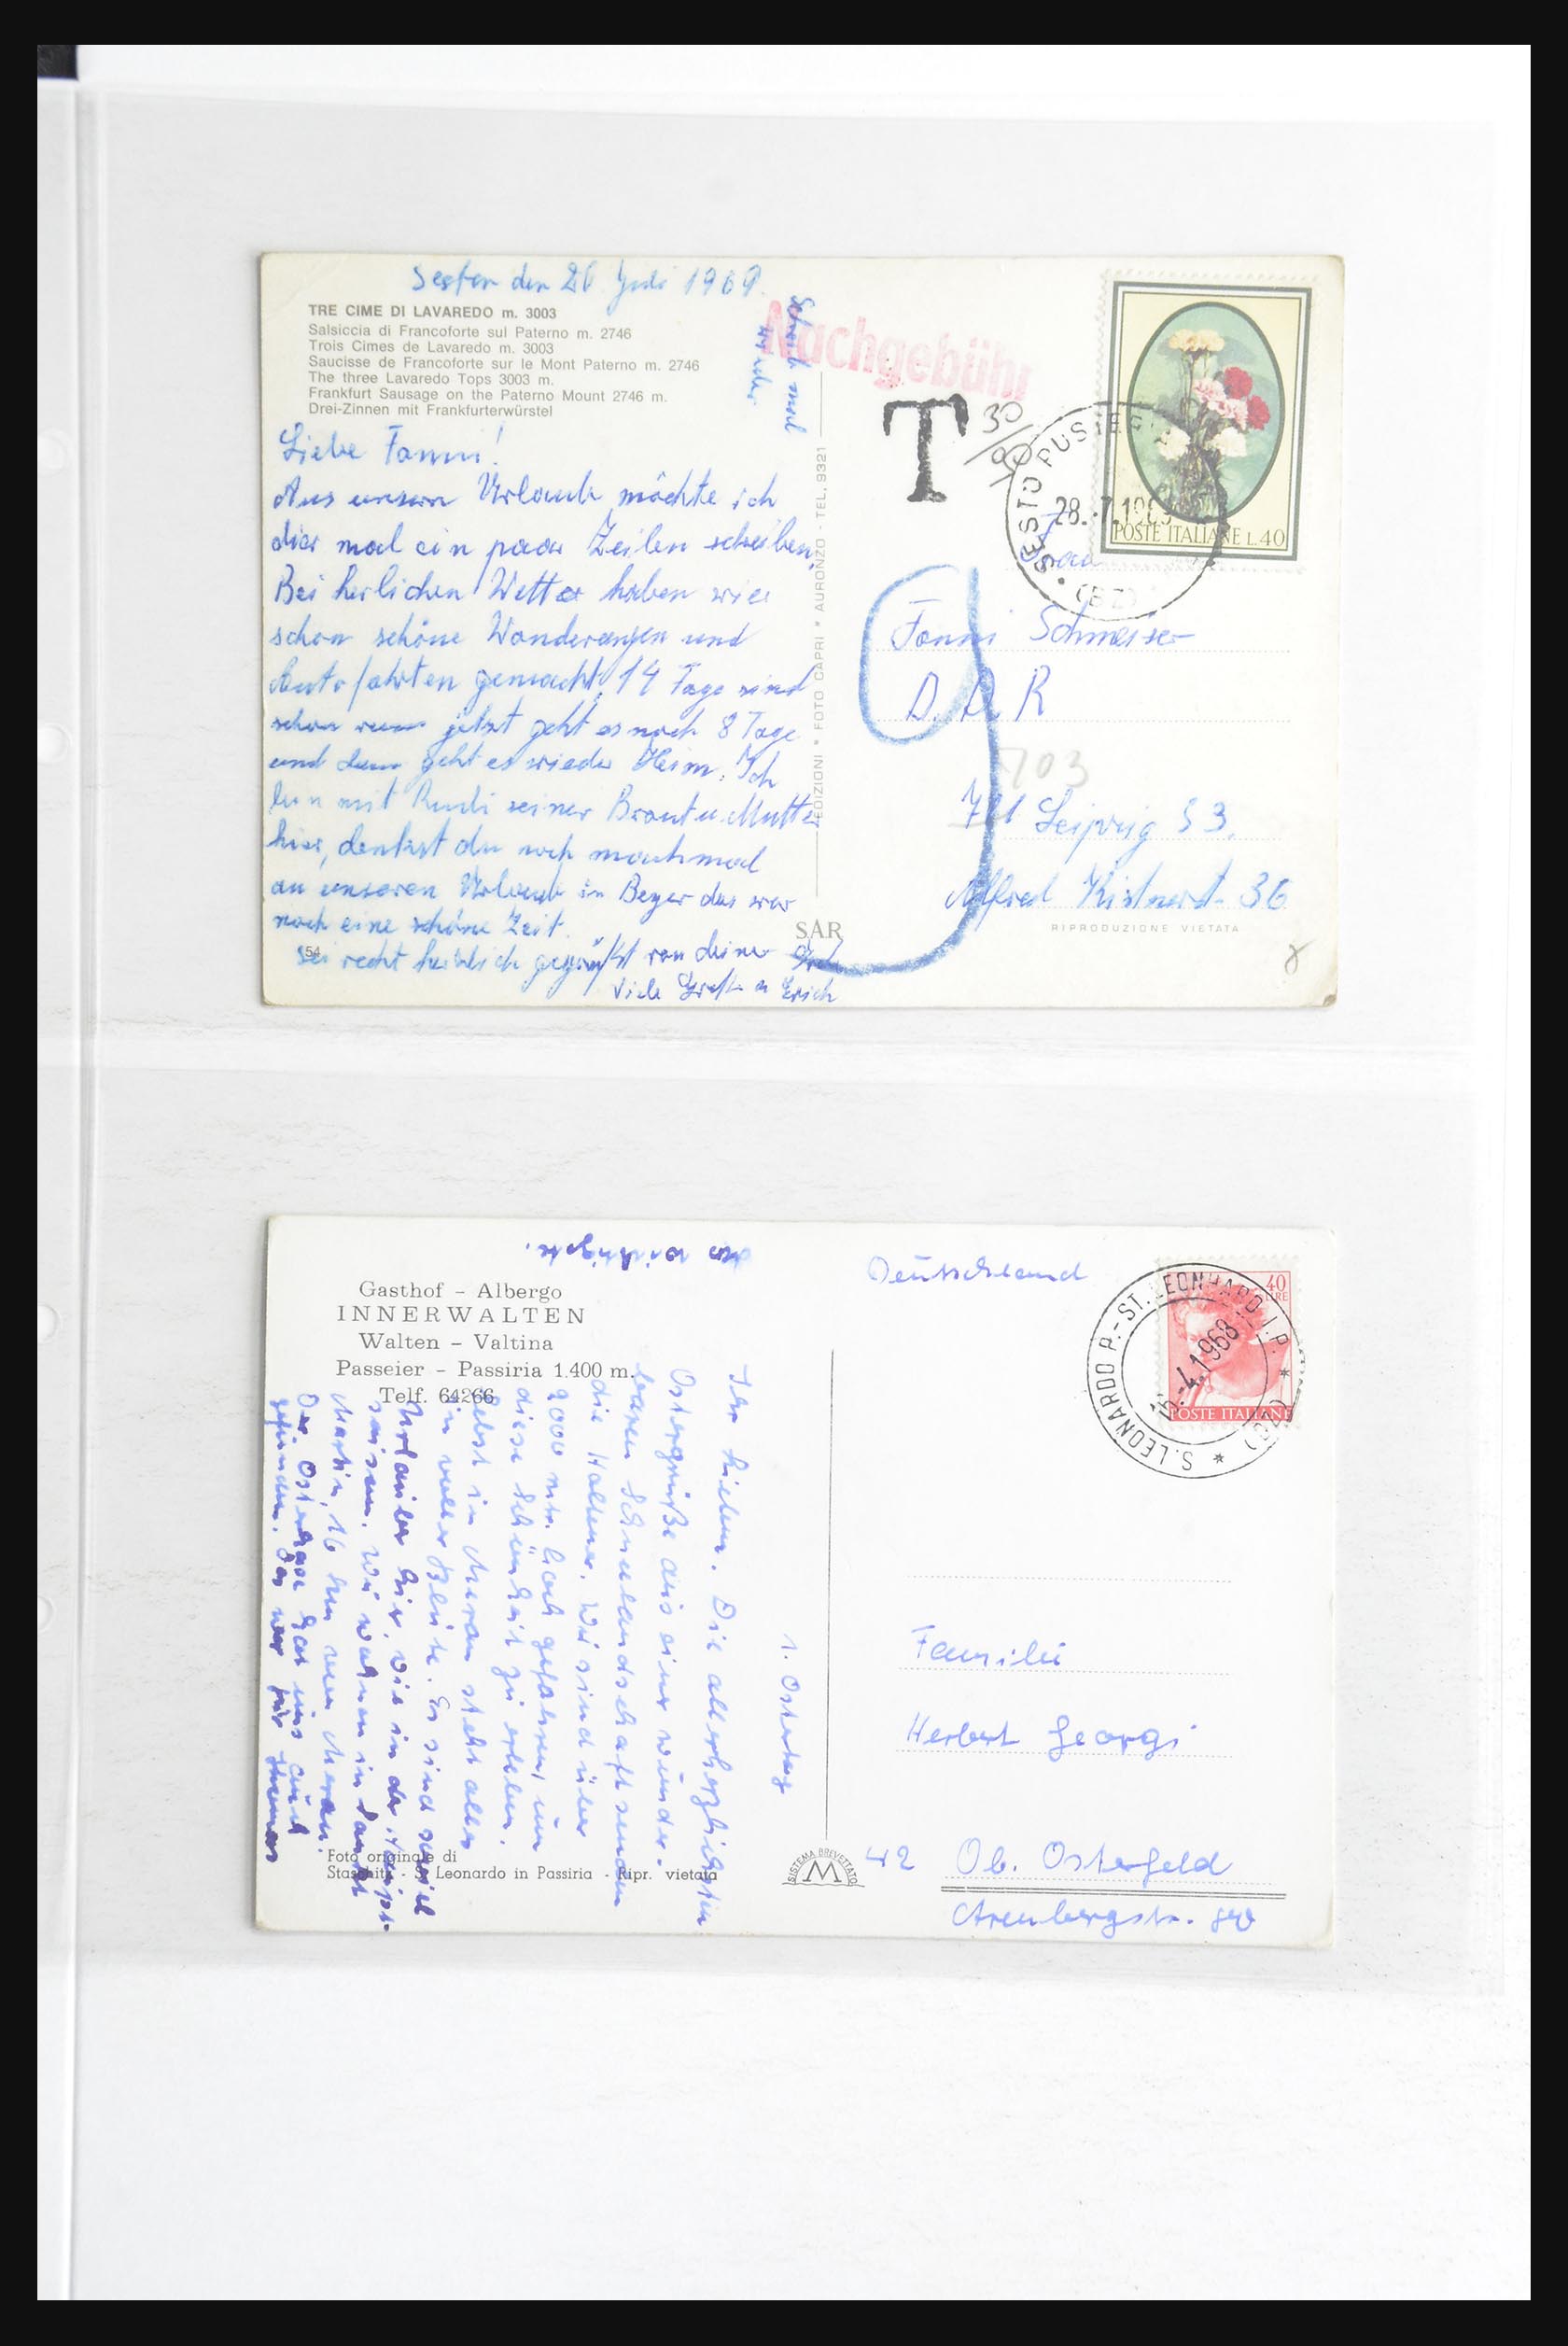 Sexten den 26. Juli 1969.
TRE CIME DI LAVAREDO m. 3003
Salsiccia di Francoforte sul Paterno m. 2746
Trois Cimes de Lavaredo m. 3003
Saucisse de Francoforte sur le Mont Paterno m. 2746
The three Lavaredo Tops 3003 m.
Frankfurt Sausage on the Paterno Mount 2746 m.
Drei-Zinnen mit Frankfurterwürstel
Schreib mal
wieder
Liebe Fanni!
Aus unsern Urlaub möchte ich
dier mal ein paar Zeilen schreiben,
Bei herlichen Wetter haben wier
schon schöne Wanderungen und
Autofahrten gemacht, 14 Tage sind
schon rum jetzt geht es noch 8 Tage
und dann geht es wieder Heim. Ich
bin mit Rudi seiner Braut u. Mutter
hier, denkst du noch manchmal
an unseren Urlaub in Beyer das war
noch eine schöne Zeit.
54
Sei recht herzlich gegrüßt von deiner
Viele Grüße Erich
EDIZIONI * FOTO CAPRI * AURONZO - TEL. 9321
SAR
Nachgebühr
T
30
90
SESTO PUSTERIA
28.-7.1969
(BZ)
POSTE ITALIANE L.40
Frau
Fanni Schmeiser
D.D.R
703
701 Leipzig S 3.
Alfred Kistnerst. 36
RIPRODUZIONE VIETATA
9
das wichtigste.
Gasthof - Albergo
INNERWALTEN
Walten - Valtina
Passeier - Passiria 1.400 m.
Telf. 64266
1. Ostertag
Ihr Lieben. Die allerherzlichsten
Ostergrüße aus einer wunder-
baren Schneelandschaft senden
die Haltener. Wir sind über
2000 mtr. hoch gefahren, um
diese Schönheit zu erleben.
Selbst in Meran steht alles
in voller Blüte. Es sind soviel
Urlauber hier, wie in der Haupt-
saison. Wir wohnen in Sankt
Martin, 16 km von Meran.
Der Osterhase hat uns auch
gefunden. Das war für Thomas
Foto originale di
Staschitz - S. Leonardo in Passiria - Ripr. vietata
SISTEMA BREVETTATO
M
Deutschland
S.LEONARDO P.-ST.LEONHARD I.P. * (BZ) *
16.-4.1968
40
LIRE
POSTE ITALIANE
Familie
Herbert Georgi
42 Ob. Osterfeld
Arenbergstr.